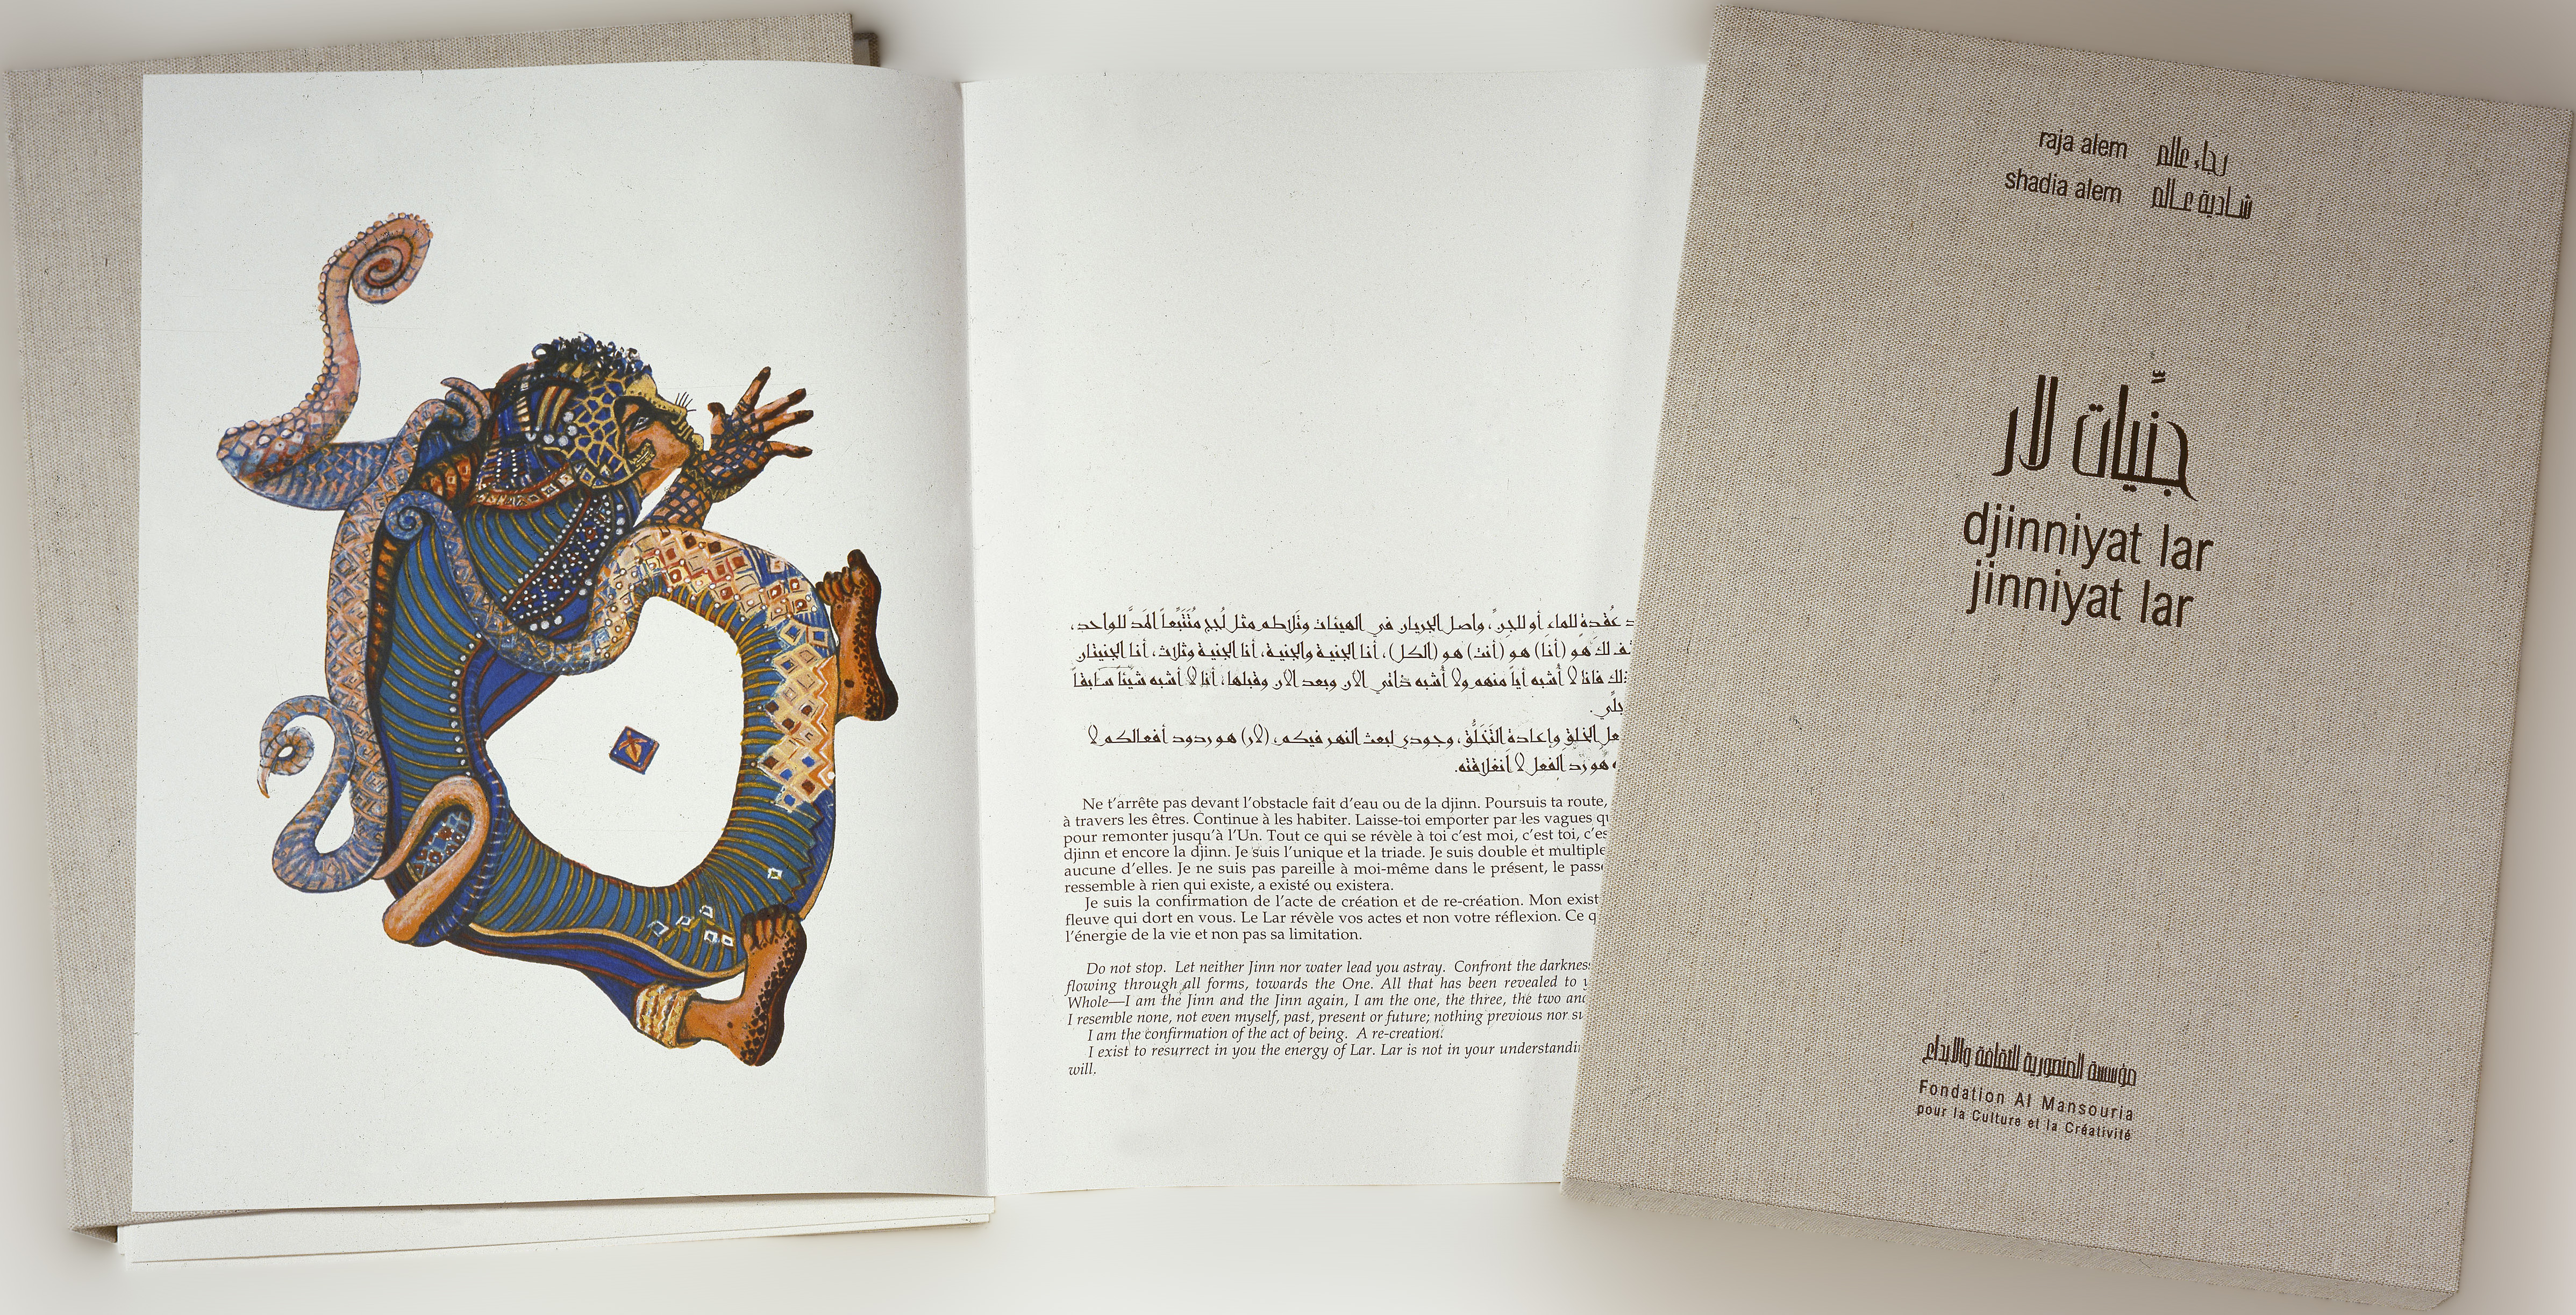 د عُقدة للماء أو للجن، واصل الجريان في الهيئات وتَلاطم مثل لُجج مُتَتَبِّعاً المَدَّ للواحد،
لك هو (أنا) هو (أنت) هو (الكل)، أنا الجنية والجنية، أنا الجنية وثلاث، أنا الجنيتان
فانا لا أُشبه أياً منهم ولا أُشبه ذاتي الآن وبعد الآن وقبلها، أنا لا أشبه شيئاً سابقاً
الخلق وإعادة التَخَلُّق، وجودي لبعث النهر فيكم، (لار) هو ردود أفعالكم لا
هو رَد الفعل لا أنغلاقته.
Ne t'arrête pas devant l'obstacle fait d'eau ou de la djinn. Poursuis ta route,
à travers les êtres. Continue à les habiter. Laisse-toi emporter par les vagues qu
pour remonter jusqu'à l'Un. Tout ce qui se révèle à toi c'est moi, c'est toi, c'es
djinn et encore la djinn. Je suis l'unique et la triade. Je suis double et multiple
aucune d'elles. Je ne suis pas pareille à moi-même dans le présent, le passé
ressemble à rien qui existe, a existé ou existera.
Je suis la confirmation de l'acte de création et de re-création. Mon exist
fleuve qui dort en vous. Le Lar révèle vos actes et non votre réflexion. Ce q
l'énergie de la vie et non pas sa limitation.
Do not stop. Let neither Jinn nor water lead you astray. Confront the darkness
flowing through all forms, towards the One. All that has been revealed to y
Whole—I am the Jinn and the Jinn again, I am the one, the three, the two and
I resemble none, not even myself, past, present or future; nothing previous nor su
I am the confirmation of the act of being. A re-creation.
I exist to resurrect in you the energy of Lar. Lar is not in your understandin
will.
raja alem رجاء عالم
shadia alem شادية عالم
جنِّيات لار
djinniyat lar
jinniyat lar
مؤسسة المنصورية للثقافة والإبداع
Fondation Al Mansouria
pour la Culture et la Créativité